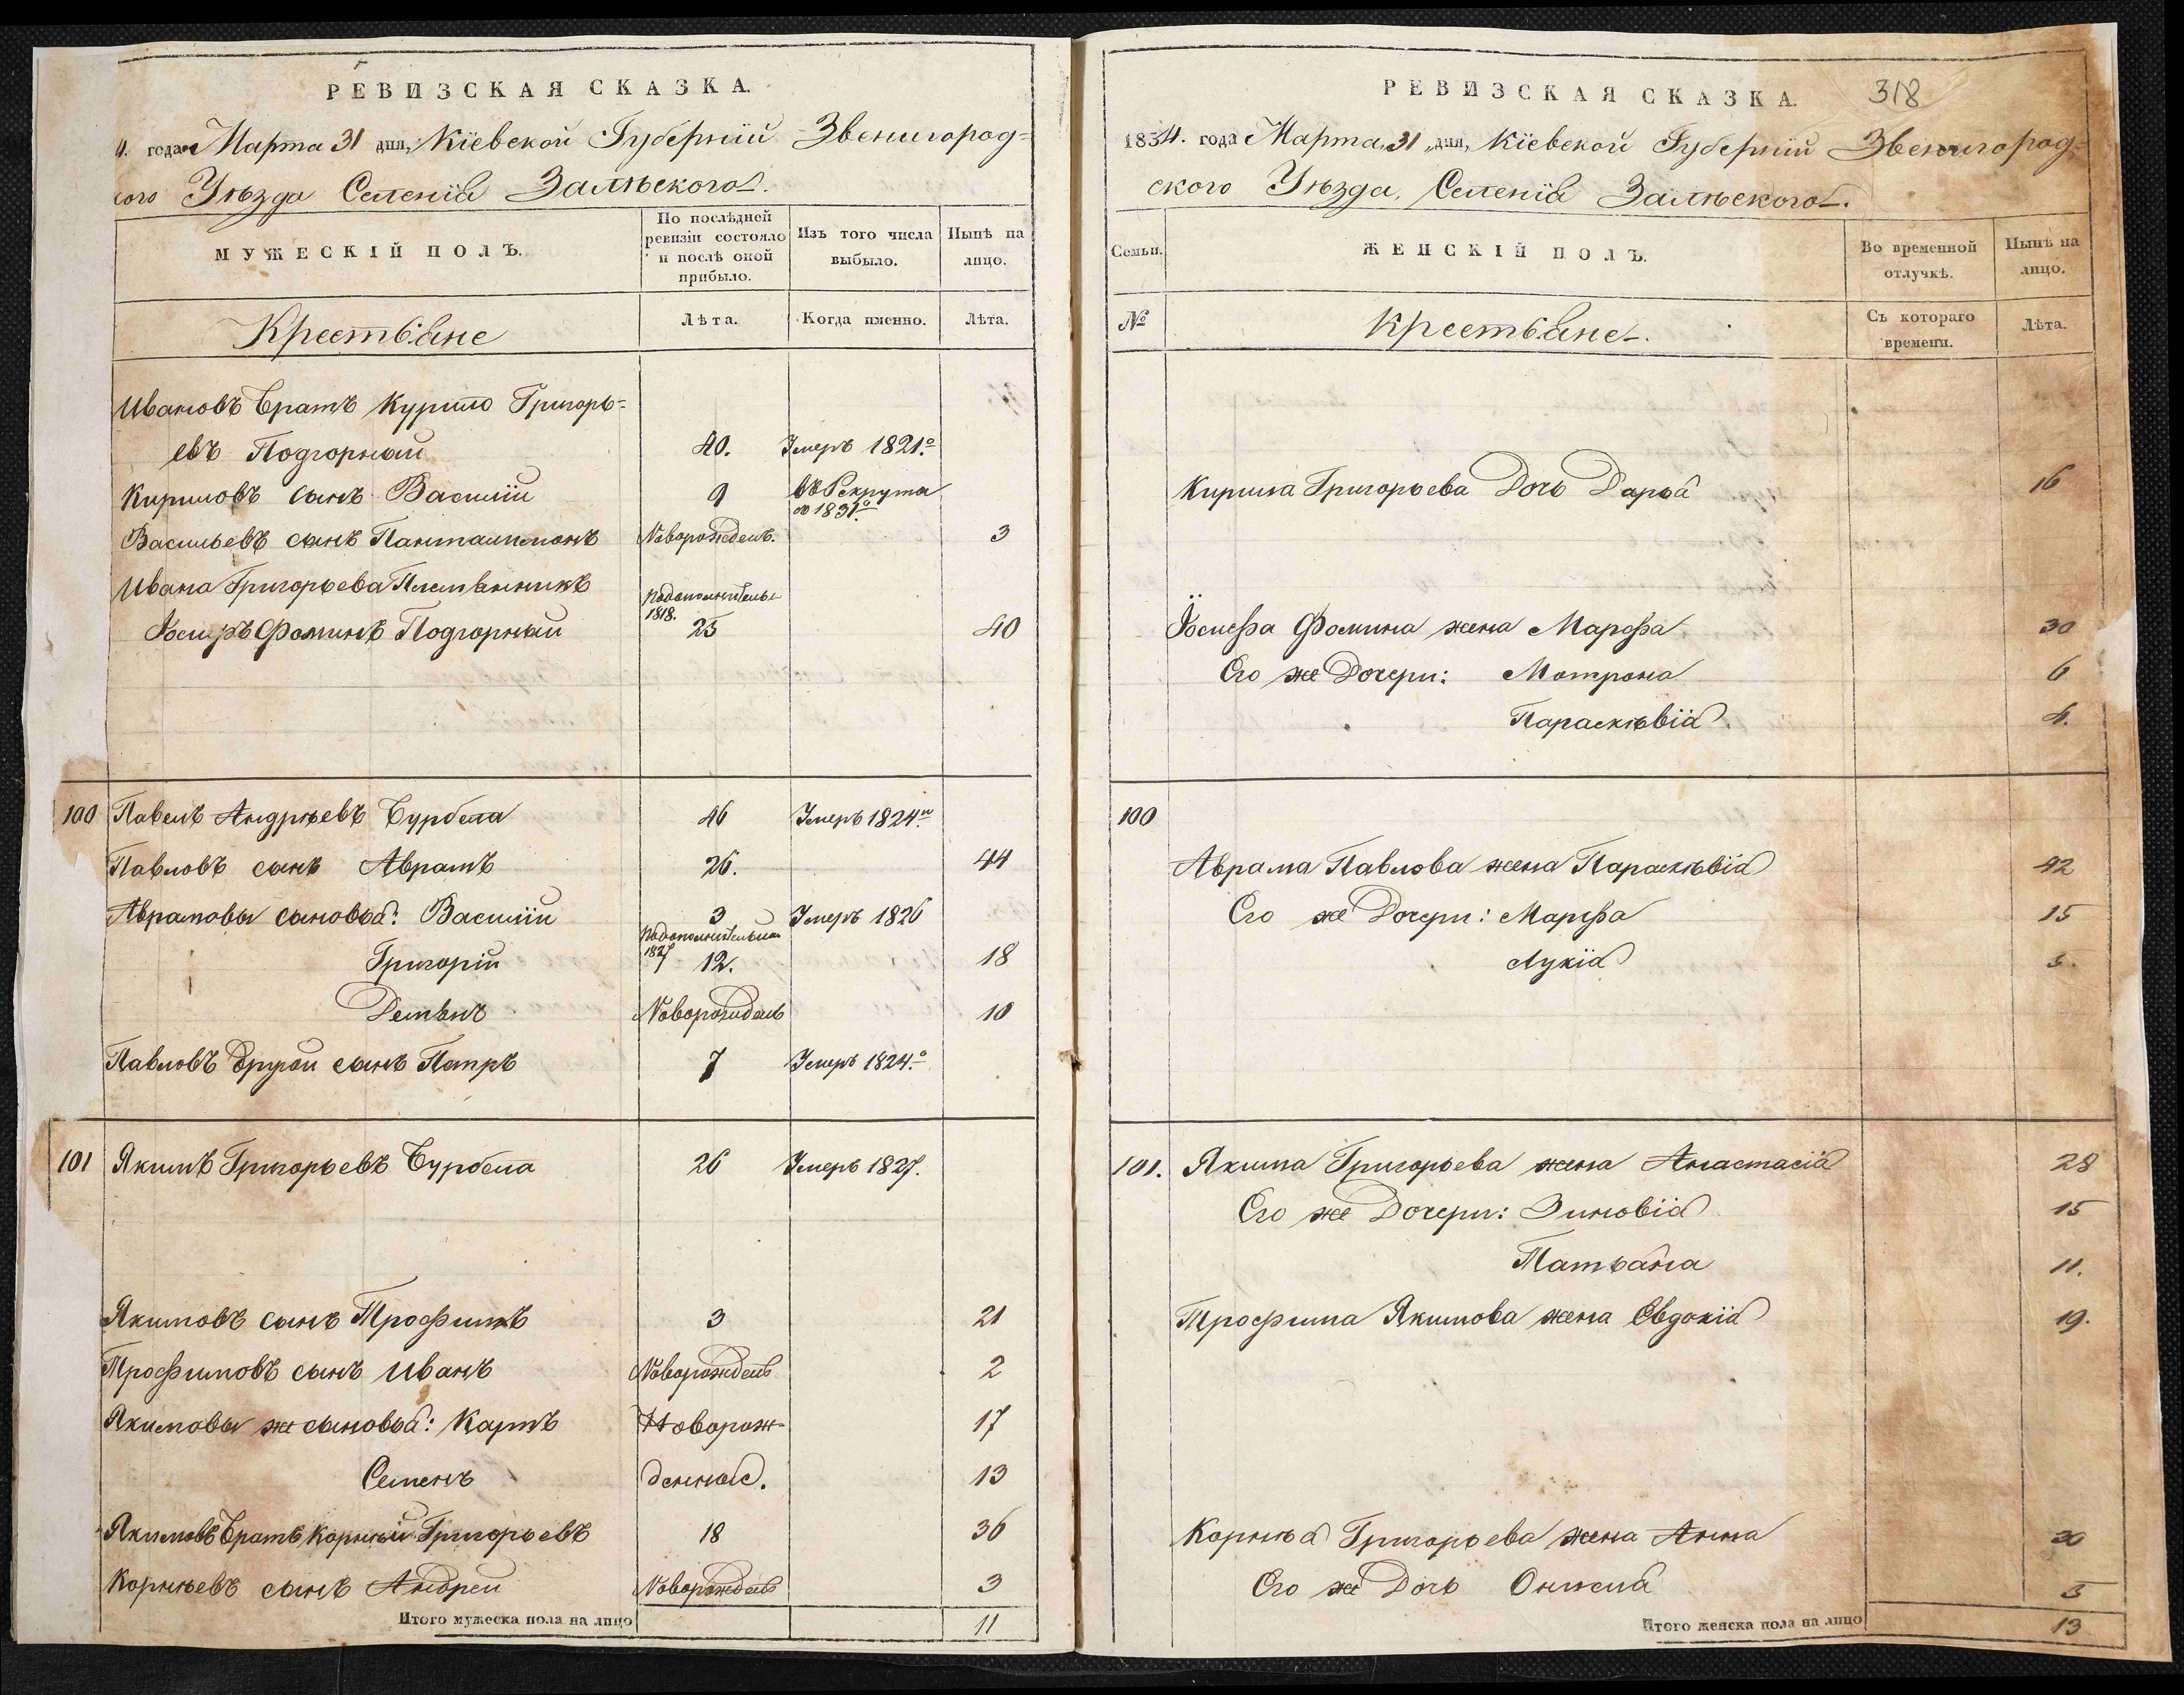 РЕВИЗСКАЯ СКАЗКА.
4. года Марта 31 дня, Кіевской Губерніи Звенигород-
кого Уѣзда Селенія Залѣского.
МУЖЕСКІЙ ПОЛЪ.
По послѣдней ревизіи состояло и послѣ оной прибыло.
Изъ того числа выбыло.
Нынѣ на лицо.
Крестьяне
Лѣта.
Когда именно.
Лѣта.
Ивановъ братъ Курило Григорь-
евъ Подгорный 40. Умеръ 1821.º
Кириловъ сынъ Василій 9 въ Рекрута въ 1831.º
Васильевъ сынъ Панталимонъ Новорожденъ. 3
Ивана Григорьева Племянникъ
По дополнительн 1818.
Іосифъ Фоминъ Подгорный 25 40
100 Павелъ Андрѣевъ Бурбела 46 Умеръ 1824
Павловъ сынъ Аврамъ 26. 44
Аврамовы сыновья: Василій 3 Умеръ 1826
По дополнительной 1827
Григорій 12. 18
Демянъ Новорожденъ 10
Павловъ другой сынъ Петръ 7 Умеръ 1824.º
101 Якимъ Григорьевъ Бурбела 26 Умеръ 1827.
Якимовъ сынъ Трофимъ 3 21
Трофимовъ сынъ Иванъ Новорожденъ 2
Якимовы же сыновья: Карпъ Новорож- 17
Семенъ денные. 13
Якимовъ братъ Корнѣй Григорьевъ 18 36
Корнѣевъ сынъ Андрей Новорожденъ 3
Итого мужеска пола на лицо 11
РЕВИЗСКАЯ СКАЗКА.
318
1834. года Марта 31 дня, Кіевской Губерніи Звенигород-
ского Уѣзда, Селенія Залѣского.
Семьи.
ЖЕНСКІЙ ПОЛЪ.
Во временной отлучкѣ.
Нынѣ на лицо.
№
Крестьяне.
Съ котораго времени.
Лѣта.
Кирила Григорьева Дочь Дарья 16
Іосифа Фомина жена Марфа 30
Его же Дочери: Мотрона 6
Параскѣвія 4.
100
Аврама Павлова жена Параскѣвія 42
Его же Дочери: Марфа 15
Лукія 5.
101. Якима Григорьева жена Анастасія 28
Его же Дочери: Зиновія 15
Татьяна 11.
Трофима Якимова жена Евдокія 19.
Корнѣя Григорьева жена Анна 30
Его же Дочь Онисия 3
Итого женска пола на лицо 13